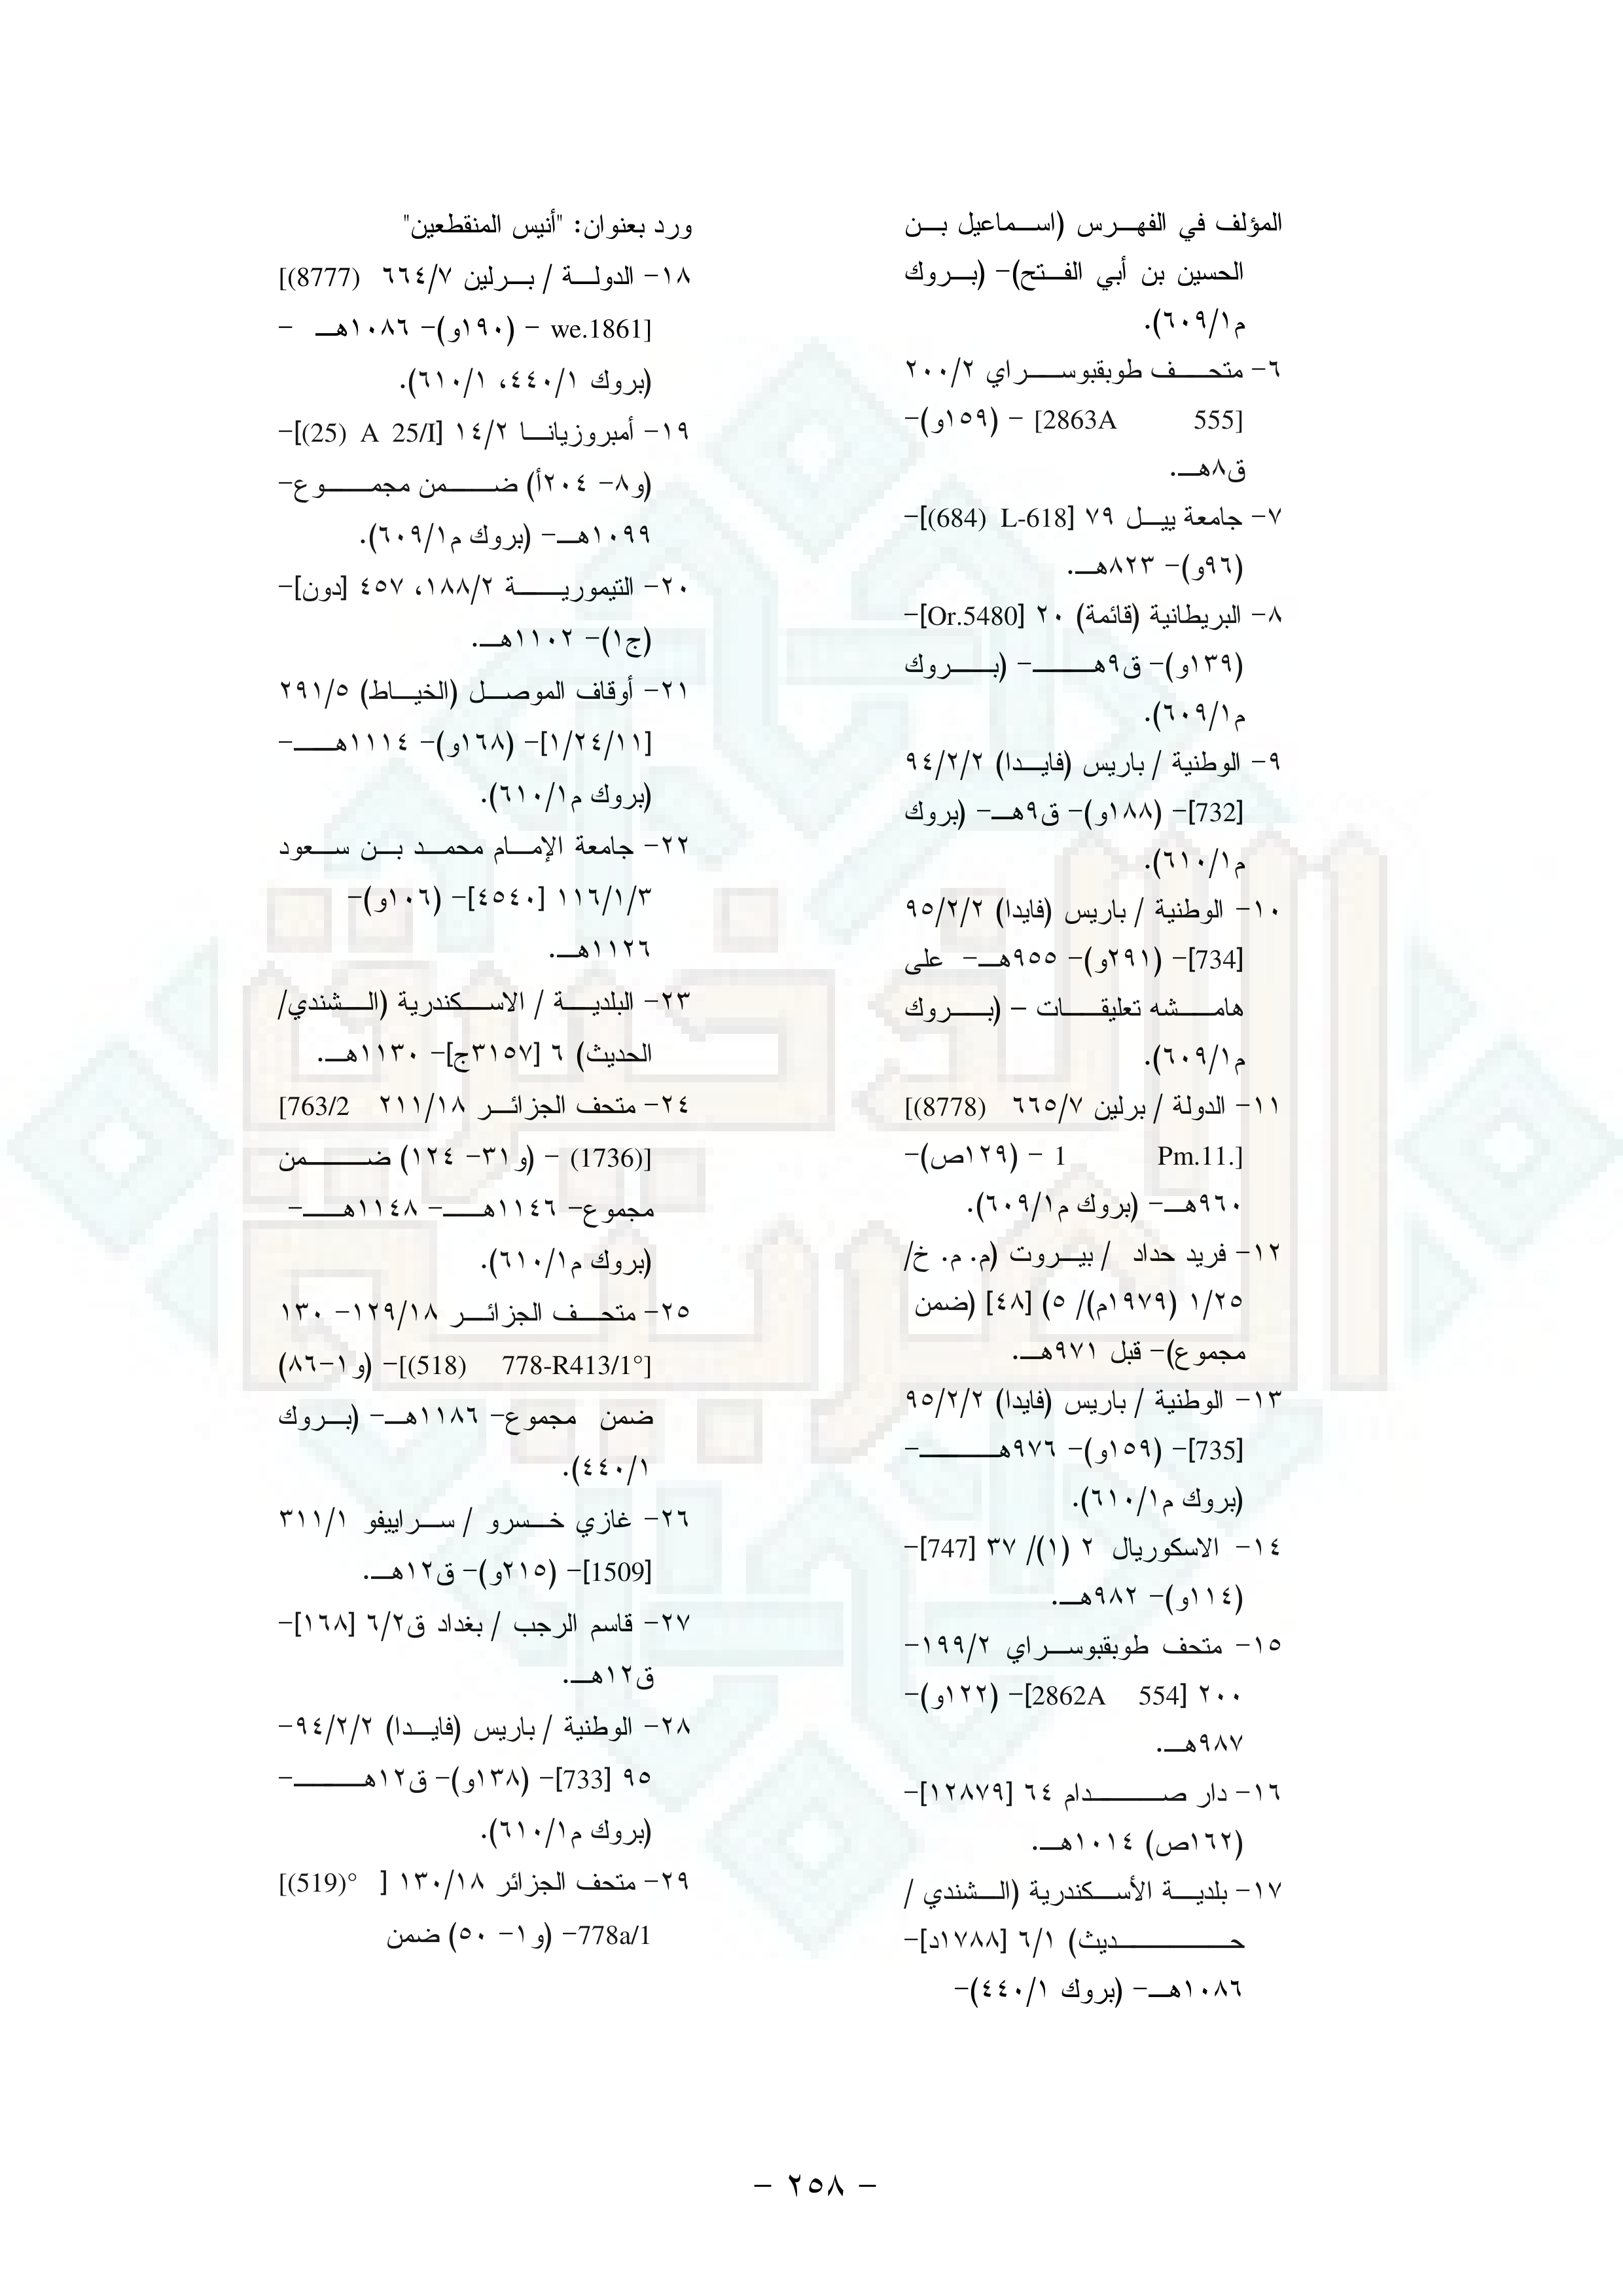 المؤلف في الفهرس (اسماعيل بن
الحسين بن أبي الفتح)- (بروك
م١/٦٠٩).
٦- متحف طوبقبوسراي ٢/٢٠٠
[2863A 555] - (١٥٩و)-
ق٨هـ.
٧- جامعة ييل ٧٩ [L-618 (684)]-
(٩٦و)- ٨٢٣هـ.
٨- البريطانية (قائمة) ٢٠ [Or.5480]-
(١٣٩و)- ق٩هـ- (بروك
م١/٦٠٩).
٩- الوطنية / باريس (فايدا) ٢/٢/٩٤
[732]- (١٨٨و)- ق٩هـ- (بروك
م١/٦١٠).
١٠- الوطنية / باريس (فايدا) ٢/٢/٩٥
[734]- (٢٩١و)- ٩٥٥هـ- على
هامشه تعليقات – (بروك
م١/٦٠٩).
١١- الدولة / برلين ٧/٦٦٥ (8778)]
[Pm.11. 1 - (١٢٩ص)-
٩٦٠هـ- (بروك م١/٦٠٩).
١٢- فريد حداد / بيروت (م. م. خ/
١/٢٥ (١٩٧٩م)/ ٥) [٤٨] (ضمن
مجموع)- قبل ٩٧١هـ.
١٣- الوطنية / باريس (فايدا) ٢/٢/٩٥
[735]- (١٥٩و)- ٩٧٦هـ-
(بروك م١/٦١٠).
١٤- الاسكوريال ٢ (١)/ ٣٧ [747]-
(١١٤و)- ٩٨٢هـ.
١٥- متحف طوبقبوسراي ٢/١٩٩-
٢٠٠ [2862A 554]- (١٢٢و)-
٩٨٧هـ.
١٦- دار صدام ٦٤ [١٢٨٧٩]-
(١٦٢ص) ١٠١٤هـ.
١٧- بلدية الأسكندرية (الشندي /
حديث) ٦/١ [١٧٨٨د]-
١٠٨٦هـ- (بروك ١/٤٤٠)-
ورد بعنوان: "أنيس المنقطعين"
١٨- الدولة / برلين ٧/٦٦٤ (8777)]
[we.1861 - (١٩٠و)- ١٠٨٦هـ -
(بروك ١/٤٤٠، ١/٦١٠).
١٩- أمبروزيانا ٢/١٤ [A 25/I (25)]-
(و٨- ٢٠٤أ) ضمن مجموع-
١٠٩٩هـ- (بروك م١/٦٠٩).
٢٠- التيمورية ٢/١٨٨، ٤٥٧ [دون]-
(ج١)- ١١٠٢هـ.
٢١- أوقاف الموصل (الخياط) ٥/٢٩١
[١/٢٤/١١]- (١٦٨و)- ١١١٤هـ-
(بروك م١/٦١٠).
٢٢- جامعة الإمام محمد بن سعود
٣/١/١١٦ [٤٥٤٠]- (١٠٦و)-
١١٢٦هـ.
٢٣- البلدية / الاسكندرية (الشندي/
الحديث) ٦ [٣١٥٧ج]- ١١٣٠هـ.
٢٤- متحف الجزائر ١٨/٢١١ 763/2]
[(1736) - (و٣١- ١٢٤) ضمن
مجموع- ١١٤٦هـ- ١١٤٨هـ-
(بروك م١/٦١٠).
٢٥- متحف الجزائر ١٨/١٢٩- ١٣٠
[778-R413/1° (518)]- (و١-٨٦)
ضمن مجموع- ١١٨٦هـ- (بروك
١/٤٤٠).
٢٦- غازي خسرو / سراييفو ١/٣١١
[1509]- (٢١٥و)- ق١٢هـ.
٢٧- قاسم الرجب / بغداد ق٢/٦ [١٦٨]-
ق١٢هـ.
٢٨- الوطنية / باريس (فايدا) ٢/٢/٩٤-
٩٥ [733]- (١٣٨و)- ق١٢هـ-
(بروك م١/٦١٠).
٢٩- متحف الجزائر ١٨/١٣٠ [ °(519)]
778a/1- (و١- ٥٠) ضمن
- ٢٥٨ -